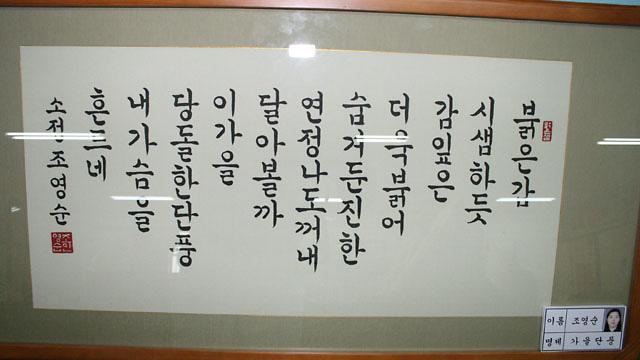 붉은감
시샘하듯
감잎은
더욱붉어
숨겨둔진한
연정나도꺼내
달아볼까
이가을
당돌한단풍
내가슴을
흔드네
소정조영순
이름 조영순
명제 가을단풍